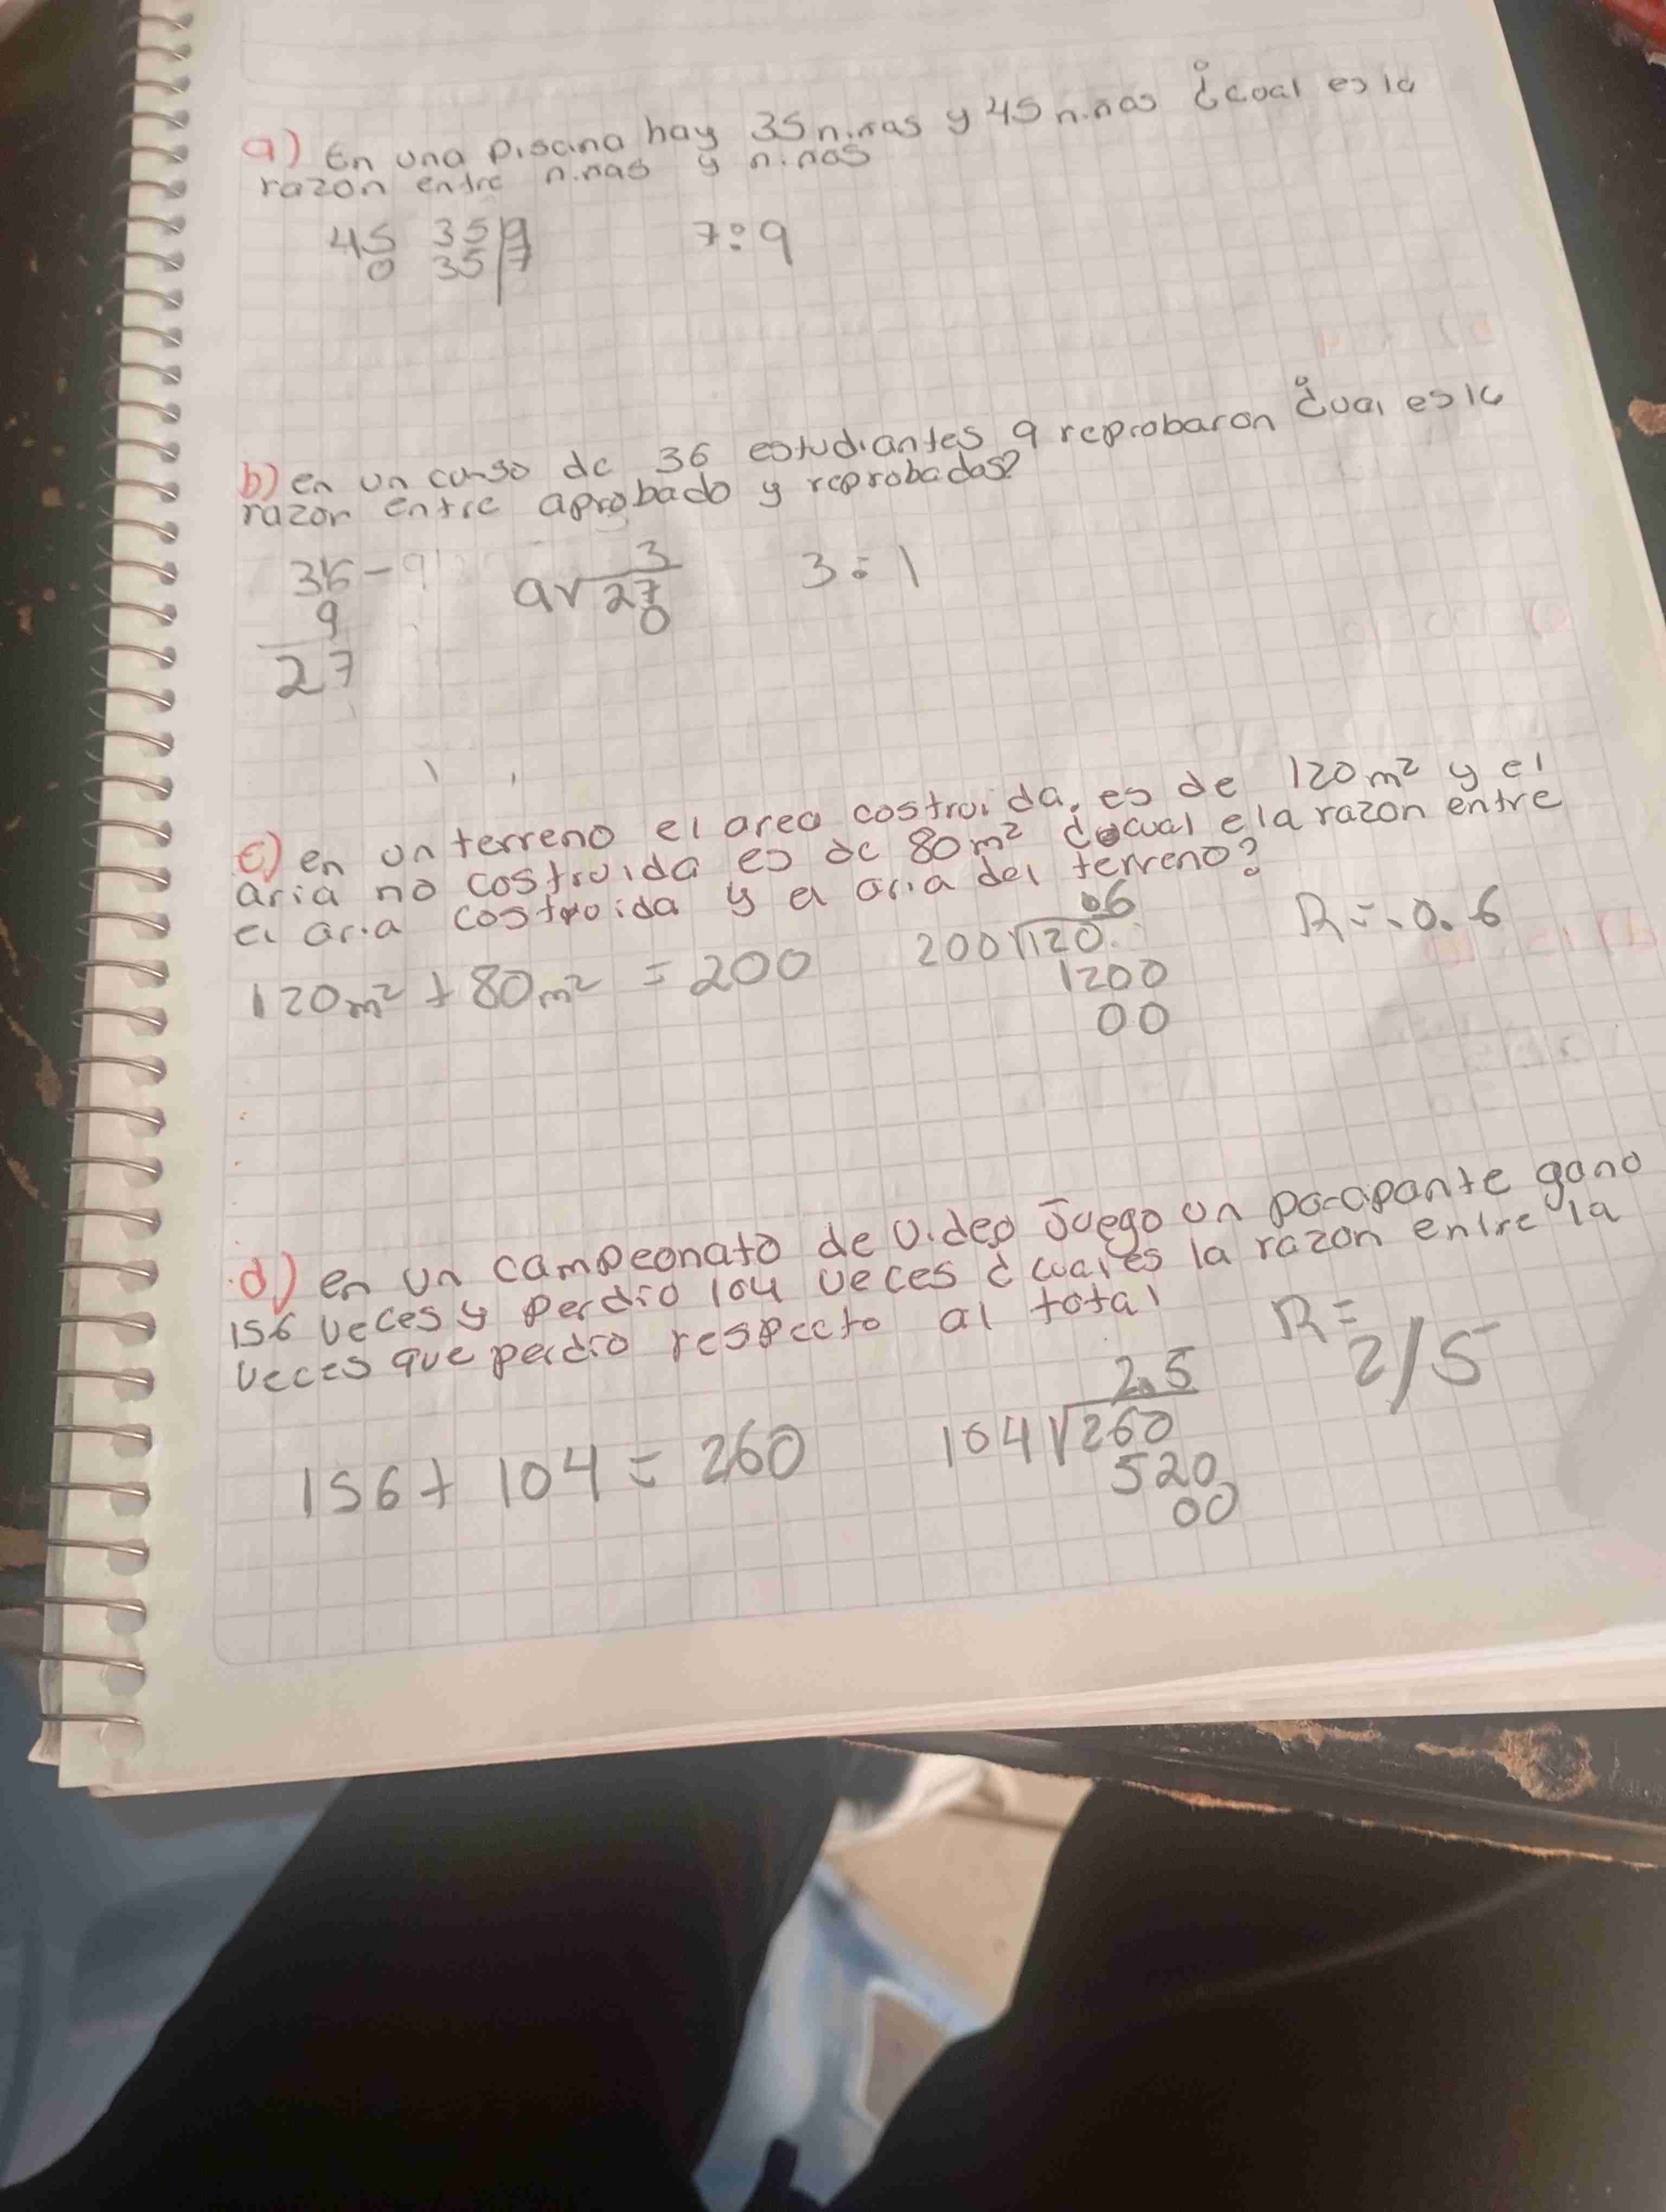 a) En una piscina hay 35 niñas y 45 niños ¿cual es la
razon entre niñas y niños
45 35|9
0 35|7
7:9
b) en un curso de 36 estudiantes 9 reprobaron ¿cual es la
razon entre aprobado y reprobadas?
36-9
9
27
3
9√27
0
3:1
c) en un terreno el area costruida. es de 120m² y el
aria no costruida es de 80m² ¿cual e la razon entre
el aria costroida y el aria del terreno?
120m² + 80m² = 200
06
200√120.
1200
00
R=.0.6
d) en un campeonato de video Juego un pa-cipante gano
156 veces y perdio 104 veces ¿cual es la razon entre la
veces que perdio respecto al total
156+ 104 = 260
2.5
104√260
520
00
R=
2/5